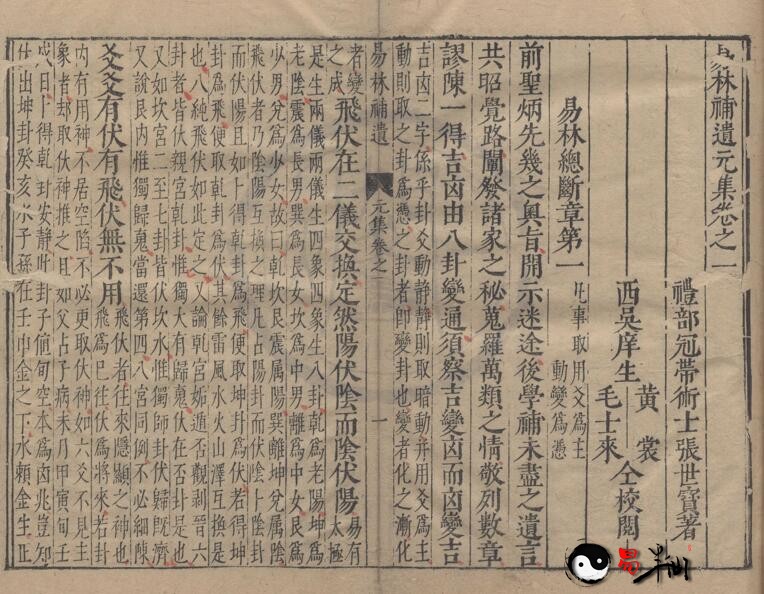 易林補遺元集卷之一
禮部冠帶術士張世寶著
西吳庠生黃裳毛士來仝校閱
易林總斷章第一 凡事取用爻爲主動變爲憑
前聖炳先幾之奧旨開示迷途後學補未盡之遺言
共昭覺路闡發諸家之秘蒐羅萬類之情敬列數章
謬陳一得吉凶由八卦變通須察吉變凶而凶變吉
吉凶二字係乎卦爻動靜靜則取暗動并用爻爲主
動則取之卦爲憑之卦者即變卦也變者化之漸化
易林補遺 元集卷之一 一
者變之成飛伏在二儀交換定然陽伏陰而陰伏陽易有太極
是生兩儀兩儀生四象四象生八卦乾爲老陽坤爲
老陰震爲長男巽爲長女坎爲中男離爲中女艮爲
少男兌爲少女故曰乾坎艮震屬陽巽離坤兌屬陰
飛伏者乃陰陽互換之理凡占陽卦而伏陰卜陰卦
而伏陽且如卜得乾卦爲飛便取坤卦爲伏若得坤
卦爲飛便取乾卦爲伏其餘雷風水火山澤互換是
也八純飛伏如此定之又論乾宮姤遁否觀剥晉六
卦者皆伏親宮乾卦惟獨大有歸䰟伏在否卦是也
又如坎宮二至七卦皆伏坎水惟獨師卦伏歸既濟
又說艮內惟獨歸䰟當還第四八宮同例不必細陳
爻爻有伏有飛伏無不用飛伏者往來隱顯之神也飛爲已往伏爲將來若卦
內有用神不居空陷不必更取伏神如六爻不見主
象者却取伏神推之且如父占子病未月甲寅旬壬
戌日卜得乾卦安靜此卦子値旬空本爲凶兆豈知
世出坤卦癸亥水子孫在壬申金之下水賴金生正
易半仙